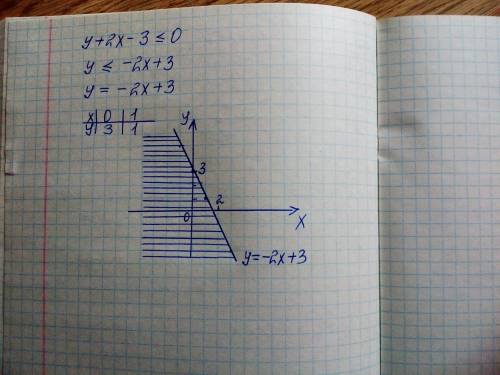 y+2x-3≤0
y ≤ -2x+3
y = -2x+3
x 0 1
y 3 1
y
3
2
0
x
y=-2x+3